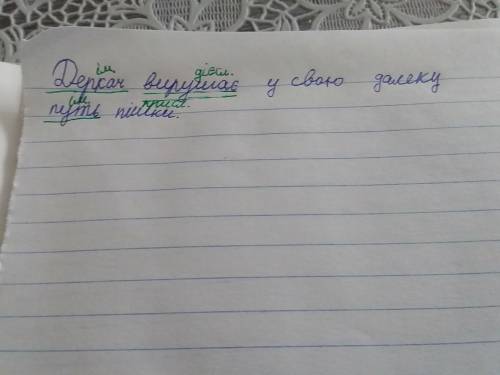 ім дієсл.
Деркач вирушає у свою далеку
ім присл.
путь пішки.